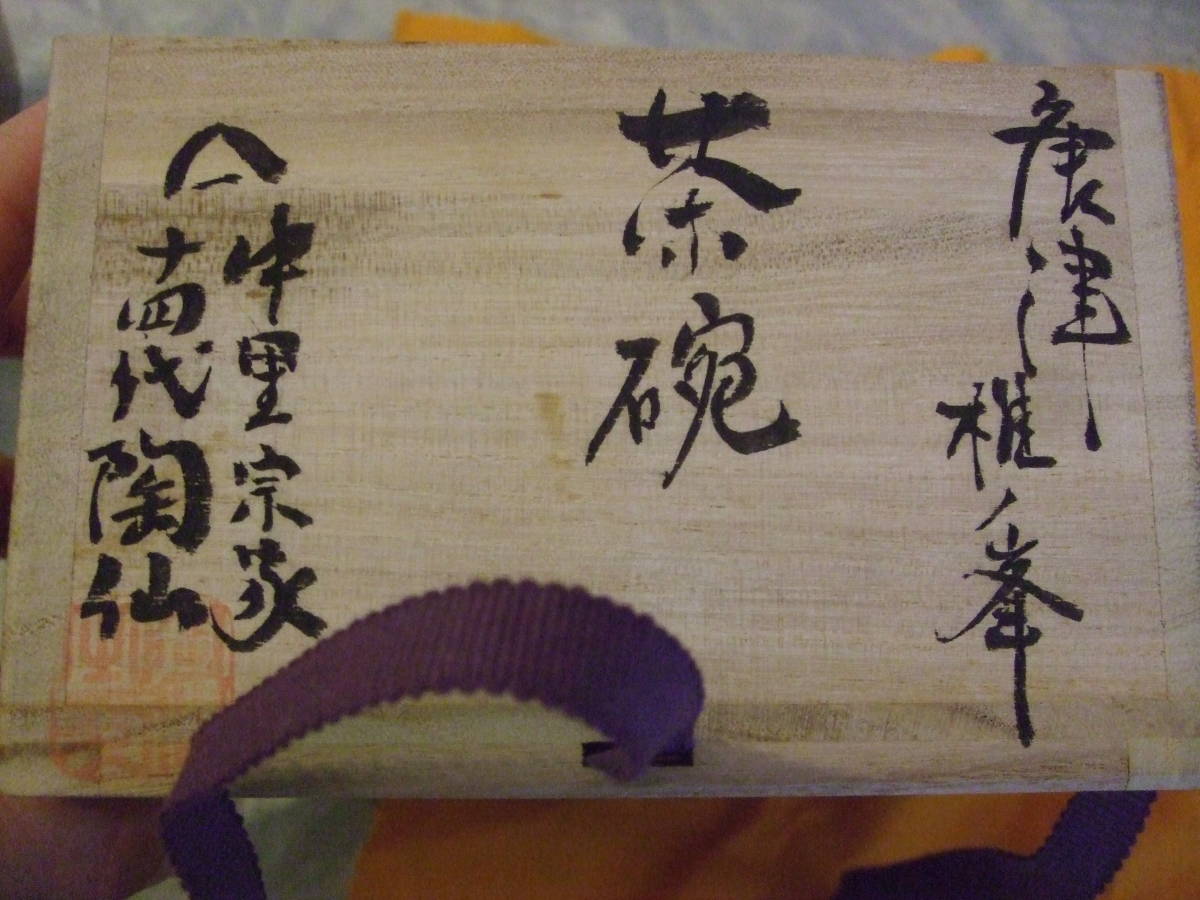 唐津椎ノ峯
茶碗
中里宗家
十四代陶仙